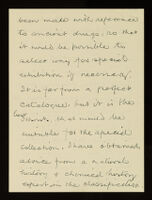 been made with reference
to ancient drugs, so that
it would be possible to
select any for special
exhibition if necessary.
It is far from a perfect
catalogue but it is the
best
that would be
suitable for the special
collection. I have obtained
advice from a natural
history & chemical history
expert in the classification